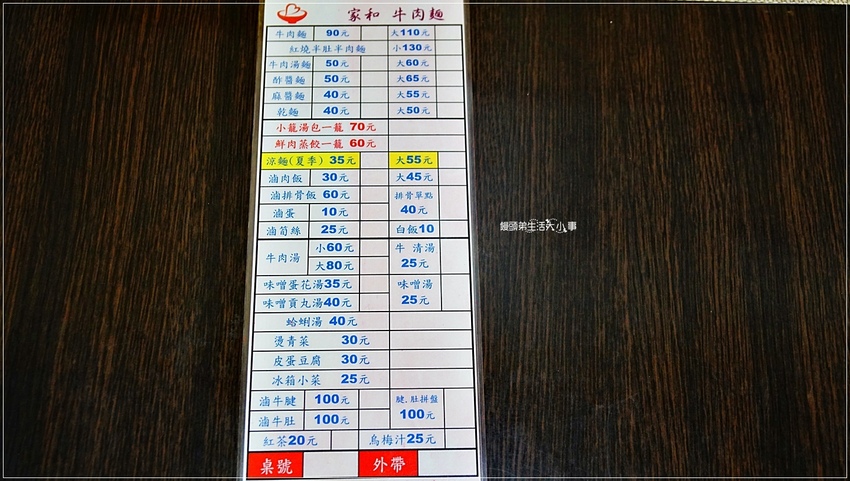 家和 牛肉麵
牛肉麵 90元 大110元
紅燒半肚半肉麵 小130元
牛肉湯麵 50元 大60元
酢醬麵 50元 大65元
麻醬麵 40元 大55元
乾麵 40元 大50元
小籠湯包一籠 70元
鮮肉蒸餃一籠 60元
涼麵(夏季) 35元 大55元
滷肉飯 30元 大45元
滷排骨飯 60元 排骨單點 40元
滷蛋 10元
滷筍絲 25元 白飯10
牛肉湯 小60元 大80元 牛 清湯 25元
味噌蛋花湯35元 味噌湯 25元
味噌貢丸湯40元
蛤蜊湯 40元
燙青菜 30元
皮蛋豆腐 30元
冰箱小菜 25元
滷牛腱 100元 腱.肚拼盤 100元
滷牛肚 100元
紅茶20元 烏梅汁25元
桌號 外帶
饅頭弟生活大小事